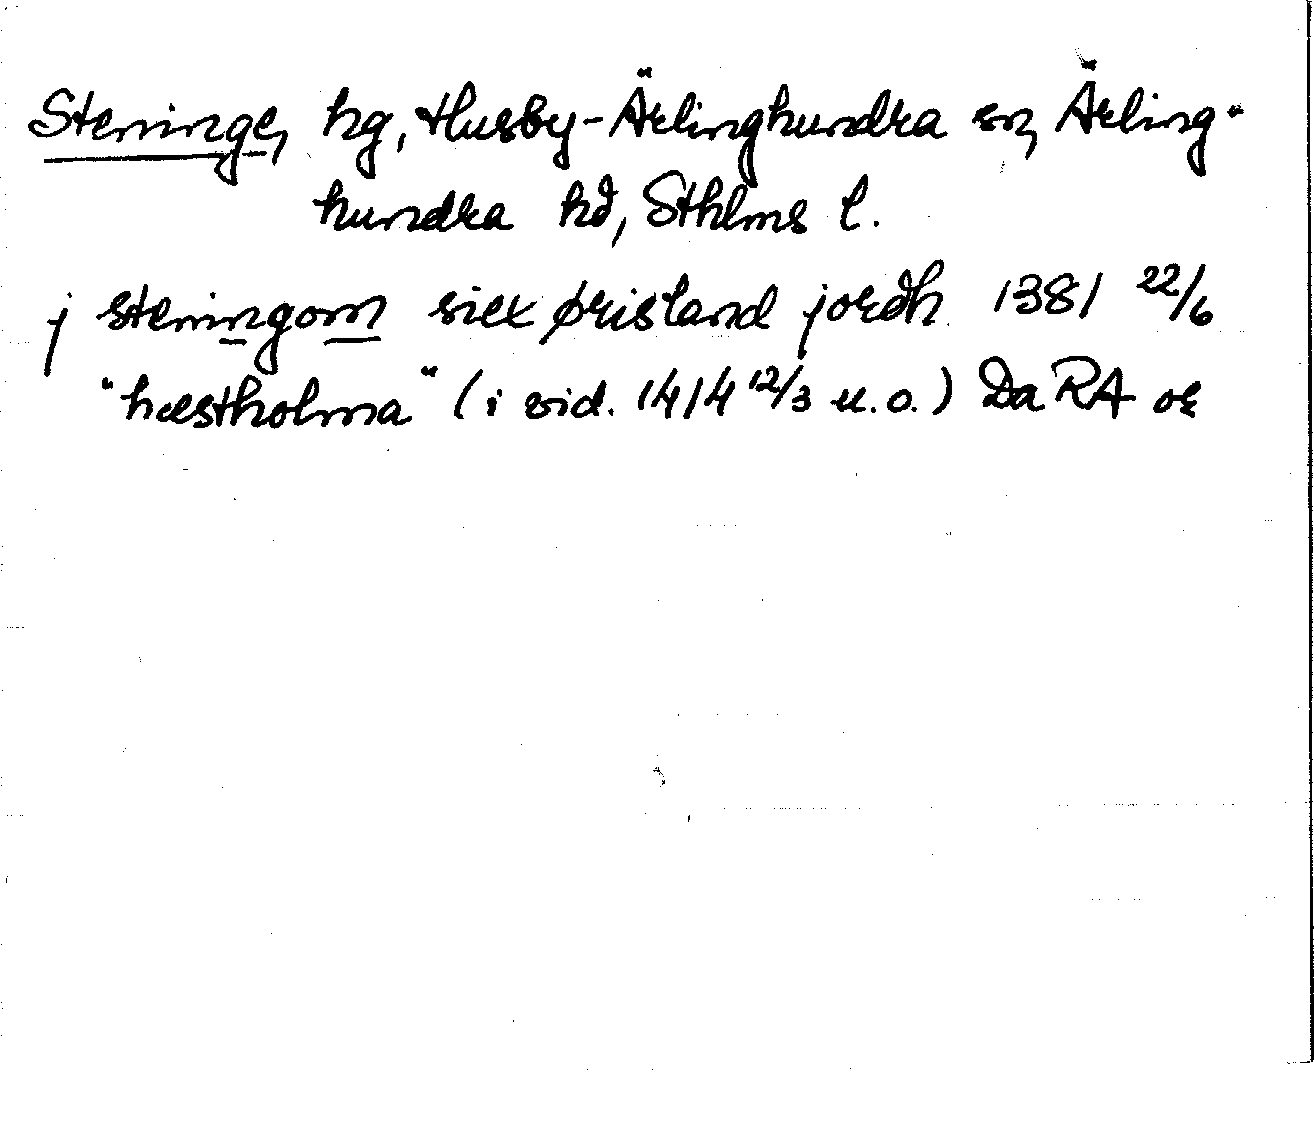 Steninge, hg, Husby-Ärlinghundra sn, Ärling-
hundra hd, Sthlms l.
j steningom siex ørisland jordh 1381 22/6
"hæstholma" (i vid. 1414 12/3 u.o.) Da RA or